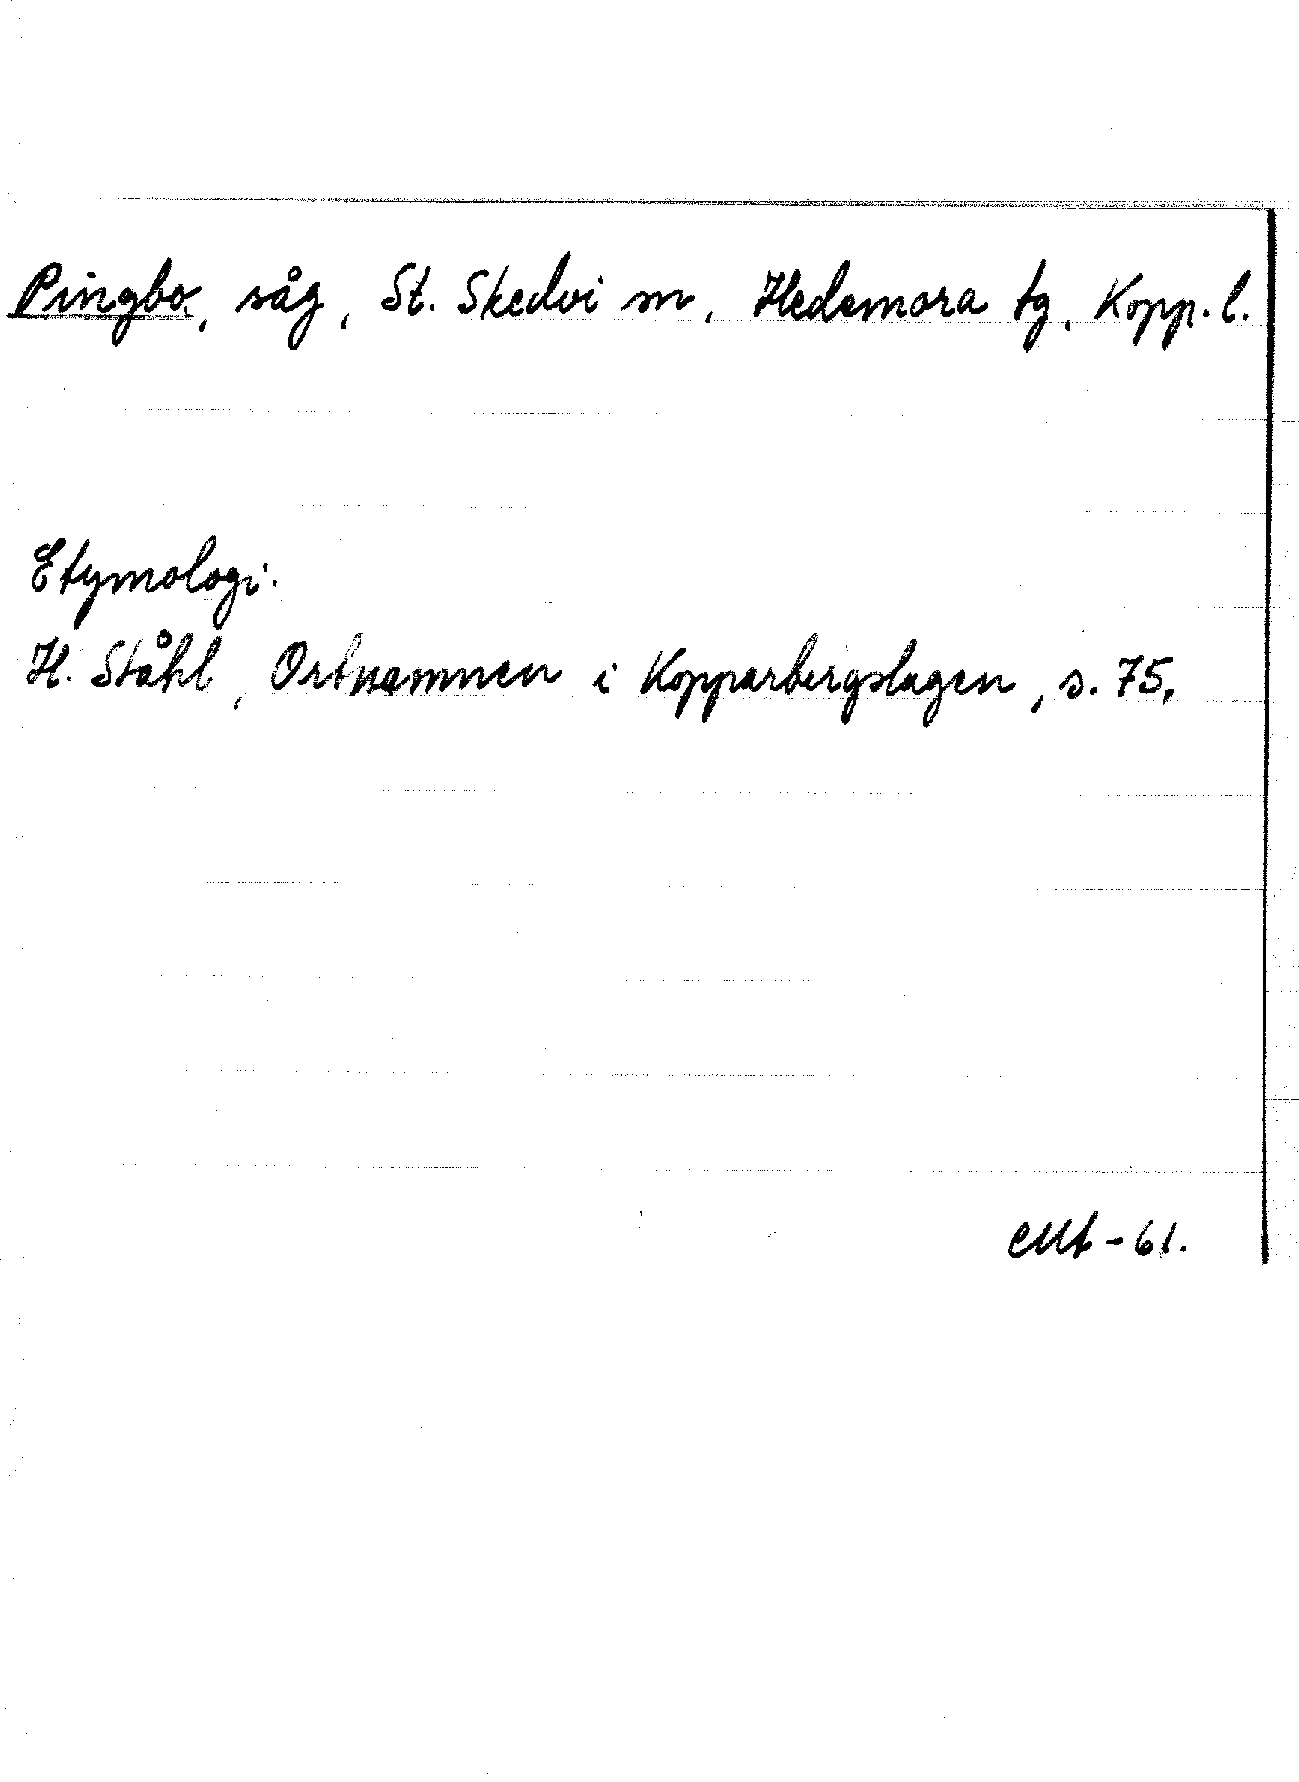 Pingbo, såg, St. Skedvi sn, Hedemora tg, Kopp. l.
Etymologi.
H. Ståhl, Ortnamnen i Kopparbergslagen, s. 75.
-61.